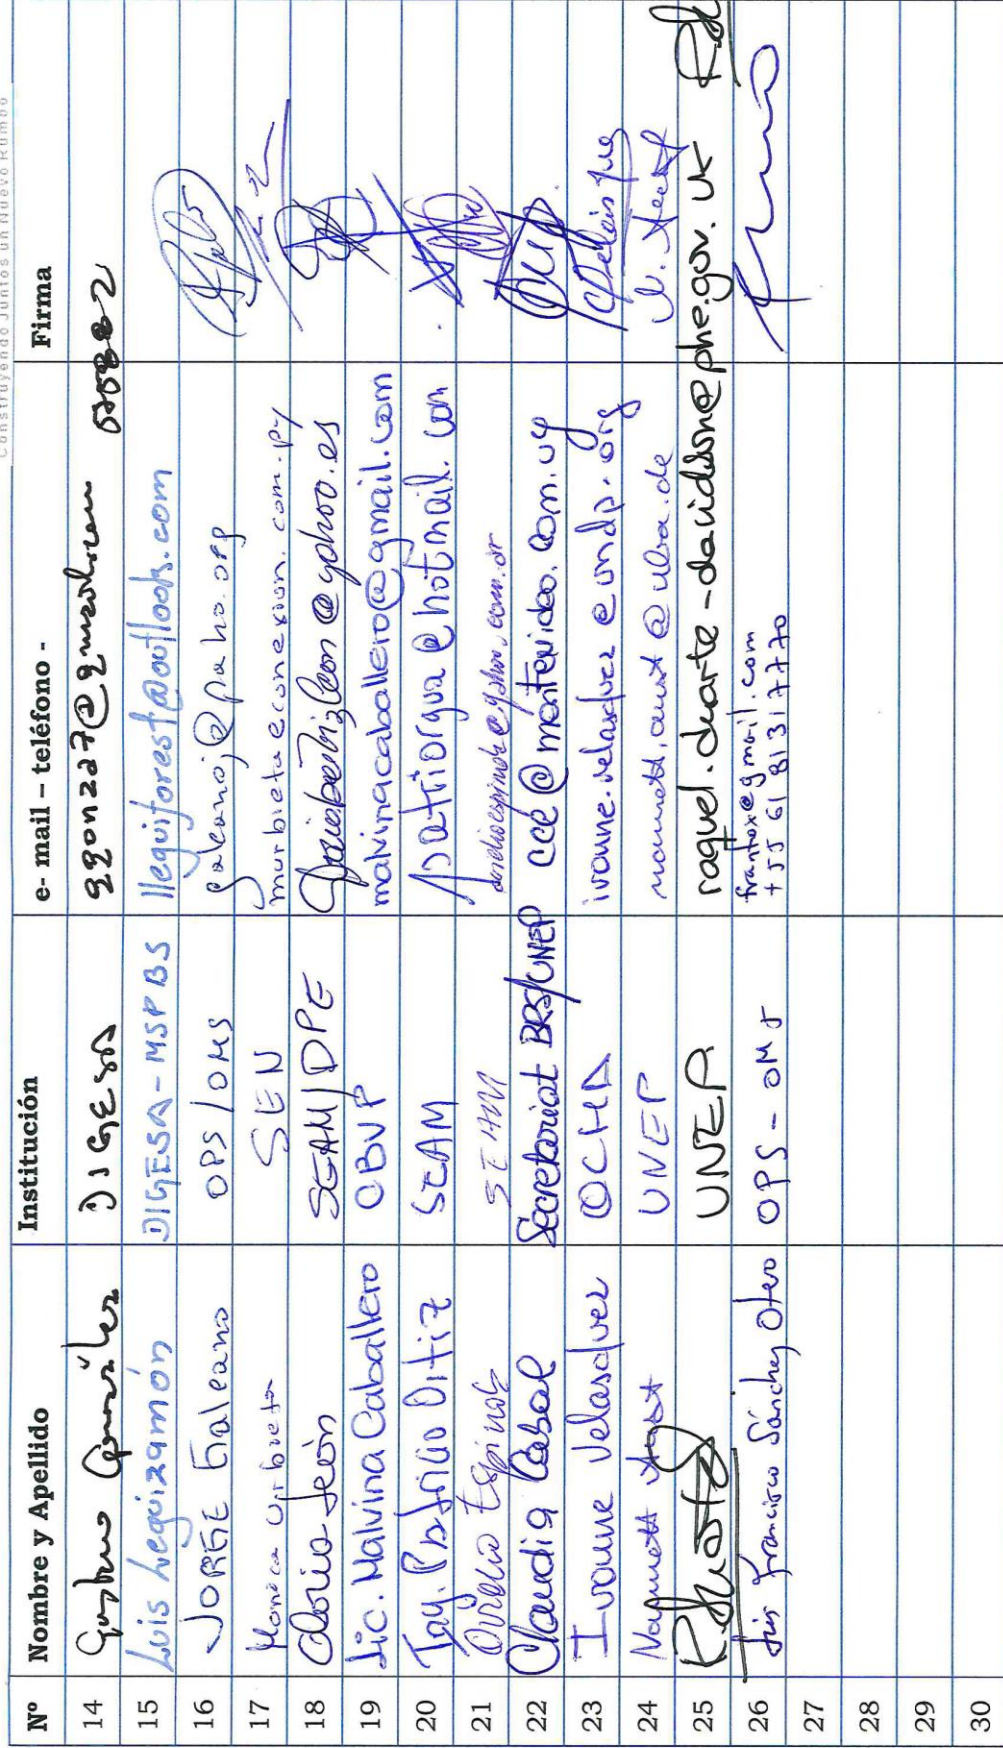 Construyendo Juntos un Nuevo Rumbo
Nº Nombre y Apellido Institución e- mail – teléfono - Firma
14 Gustavo González DIGESA ggonza27@gmail.com
15 Luis Leguizamón DIGESA - MSPBS lleguiforest@outlook.com
16 JORGE Galeano OPS/OMS galeanoj@paho.org
17 Monica Urbieta SEN murbieta@conexion.com.py
18 Gloria León SEAM/DPE gloriabeatrizleon@yahoo.es
19 Lic. Malvina Caballero CBVP malvinacaballero@gmail.com
20 Patricio Ortiz SEAM @hotmail.com
21 Ovidio Espinola SEAM ovidioespinola@yahoo.com.ar
22 Claudia Cabal Secretariat BRS/UNEP ccc@montevideo.com.uy
23 Ivonne Velasquez OCHA ivonne.velasquez@undp.org
24 UNEP @uba.de
25 UNEP raquel.duarte-davidson@phe.gov.uk
26 Luis Francisco Sánchez Otero OPS - OMS franfox@gmail.com
+55 61 81317770
27
28
29
30